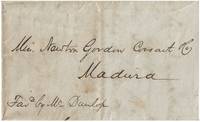 Mess. Newton Gordon Cossart &
Madeira
Fav.d by Mr. Dunlop